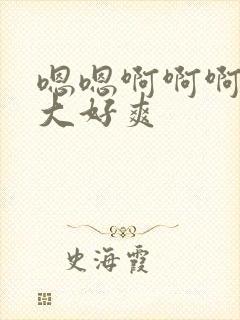 嗯嗯啊啊啊
大好爽
史海霞